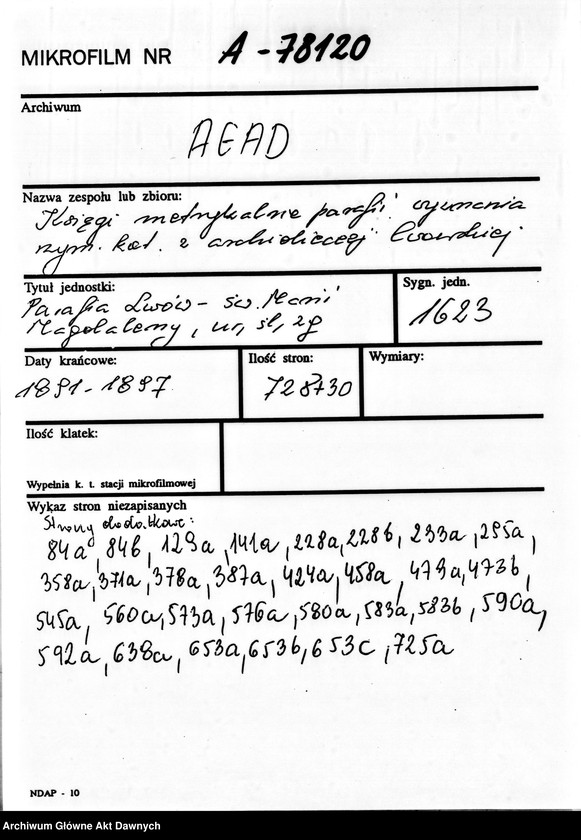 MIKROFILM NR A-78120
Archiwum
AGAD
Nazwa zespołu lub zbioru:
Księgi metrykalne parafii wyznania
rzym. kat. z archidiecezji lwowskiej
Tytuł jednostki:
Parafia Lwów - św. Marii
Magdaleny, ur, śl, zg
Sygn. jedn.
1623
Daty krańcowe:
1891-1897
Ilość stron:
728+30
Wymiary:
Ilość klatek:
Wypełnia k. t. stacji mikrofilmowej
Wykaz stron niezapisanych
Strony dodatkowe:
84a, 84b, 129a, 141a, 228a, 228b, 233a, 295a,
358a, 371a, 378a, 387a, 424a, 458a, 473a, 473b,
545a, 560a, 573a, 576a, 580a, 583a, 583b, 590a,
592a, 638a, 653a, 653b, 653c, 725a
NDAP - 10
Archiwum Główne Akt Dawnych